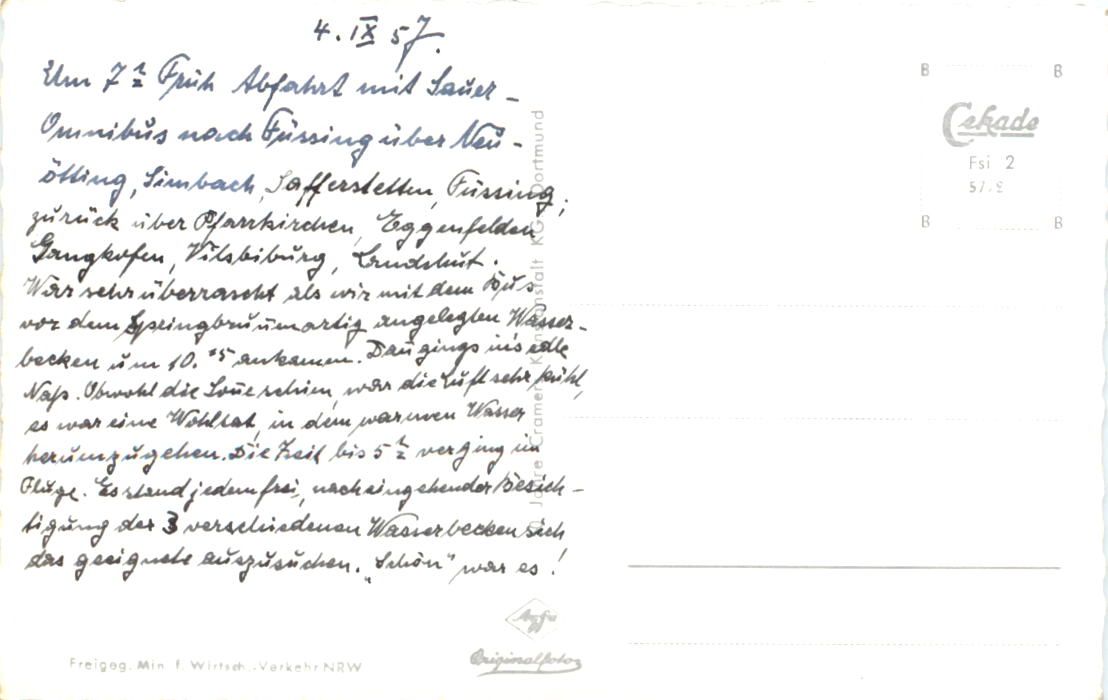 4. IX 57.
Um 7 ½ Früh Abfahrt mit Sauer-
Omnibus nach Füssing über Neu-
ötting, Simbach, Safferstetten, Füssing,
zurück über Pfarrkirchen, Eggenfelden
Gangkofen, Vilsbiburg, Landshut.
War sehr überrascht als wir mit dem Bus
vor dem springbrunnartig angelegten Wasser-
becken um 10.15 ankamen. Dan gings in's edle
Naß. Obwohl die Sonne schien, war die Luft sehr kühl,
es war eine Wohltat, in dem warmen Wasser
herumzugehen. Die Zeit bis 5 ½ verging im
Fluge. Es stand jedem frei, nach eingehender Besich-
tigung der 3 verschiedenen Wasserbecken sich
das geeignete auszusuchen. „Schön" war es!
Cekade
Fsi 2
B B
B B
Jahre Cramers Kunstanstalt KG Dortmund
Agfa
Originalfoto
Freigeg. Min. f. Wirtsch.-Verkehr NRW